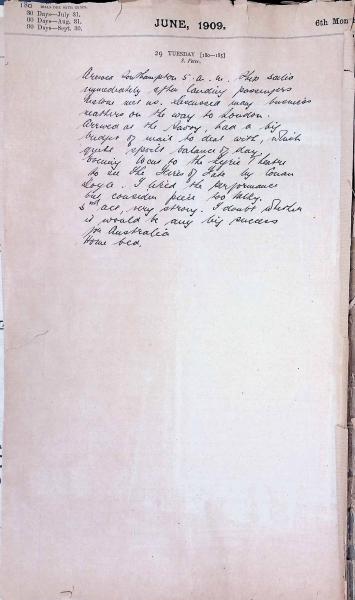 180
30 Days—July 31.
60 Days—Aug. 31.
90 Days—Sept. 30.
JUNE, 1909.
6th Mon
29 TUESDAY [180—185]
S. Peter.
Arrived Southampton 5. a. m. Ship sails
immediately after landing passengers
met us. Discussed many business
matters on the way to London.
Arrived at the Savoy, had a big
budget of mail to deal with, which
quite spoils balance of day.
Evening to the Lyric Theatre
to see The Fires of Fate by Conan
Doyle. I liked the performance
but consider piece too talky.
5th act, very strong. I doubt whether
it would be any big success
for Australia
Home bed.